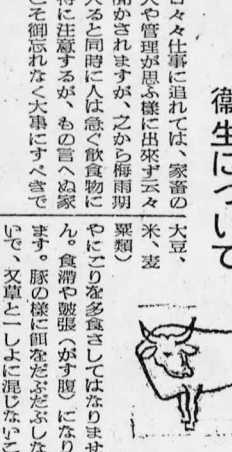 衞生について
日々仕事に追れては、家畜の
入や管理が思ふ様に出來ず云々
聞かされますが、之から梅雨期
入ると同時に人は急ぐ飲食物に
特に注意するが、もの言へぬ家
こそ御忘れなく大事にすべきで
大豆、
米、麦
粟類)
やにごりを多食さしてはなりませ
ん。食滞や皷張(がす腹)になり
ます。豚の様に餌をだぶだぶしな
いで、又草と一しよに混じないこ